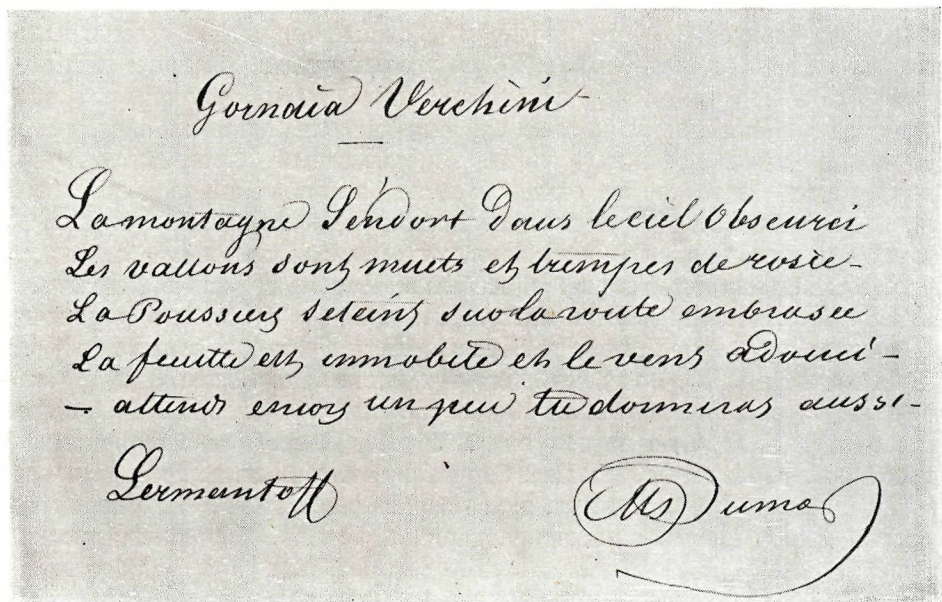 Gornaia Verchini
La montagne S'endort Dans le ciel Obscurci
Les vallons sont muets et trempes de rosée
La Poussiere seteint sur la route embrasee
La feuille est immobile et le vent adouci -
- attends encore un peu tu dormiras aussi -
Lermentoff
Alx Dumas